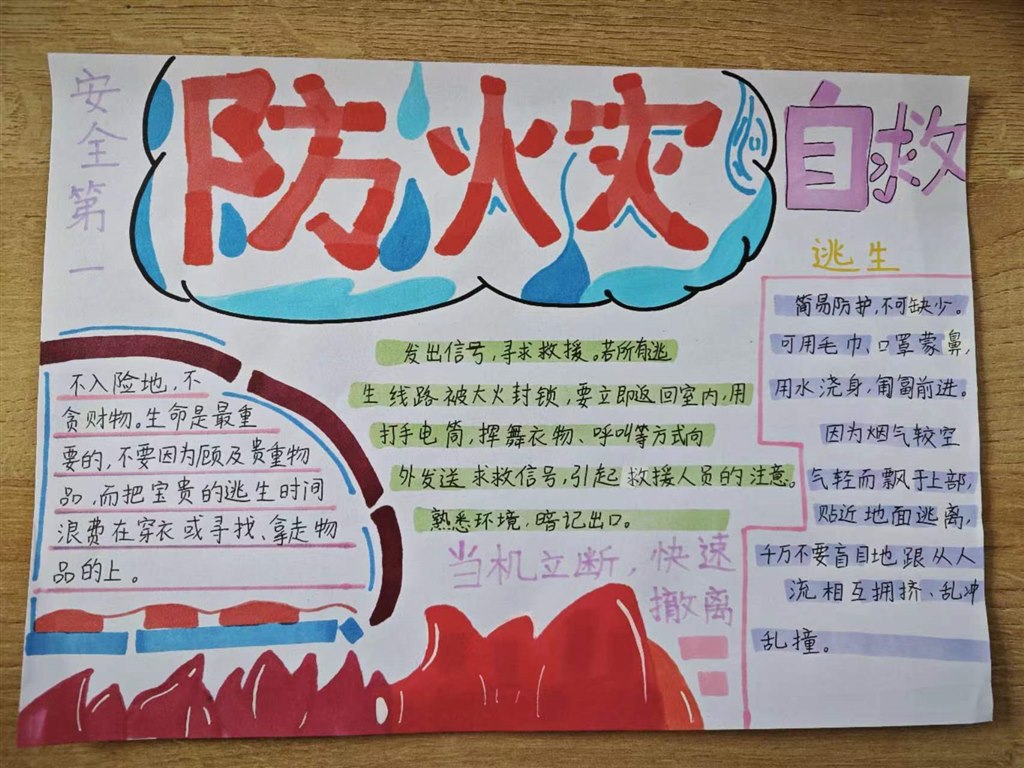 安全第一
防火灾
自救
逃生
不入险地，不
贪财物。生命是最重
要的，不要因为顾及贵重物
品，而把宝贵的逃生时间
浪费在穿衣或寻找、拿走物
品的上。
发出信号，寻求救援。若所有逃
生线路被大火封锁，要立即返回室内，用
打手电筒，挥舞衣物、呼叫等方式向
外发送求救信号，引起救援人员的注意。
熟悉环境，暗记出口。
当机立断，快速
撤离
简易防护，不可缺少。
可用毛巾、口罩蒙鼻，
用水浇身，匍匐前进。
因为烟气较空
气轻而飘于上部，
贴近地面逃离，
千万不要盲目地跟从人
流相互拥挤、乱冲
乱撞。